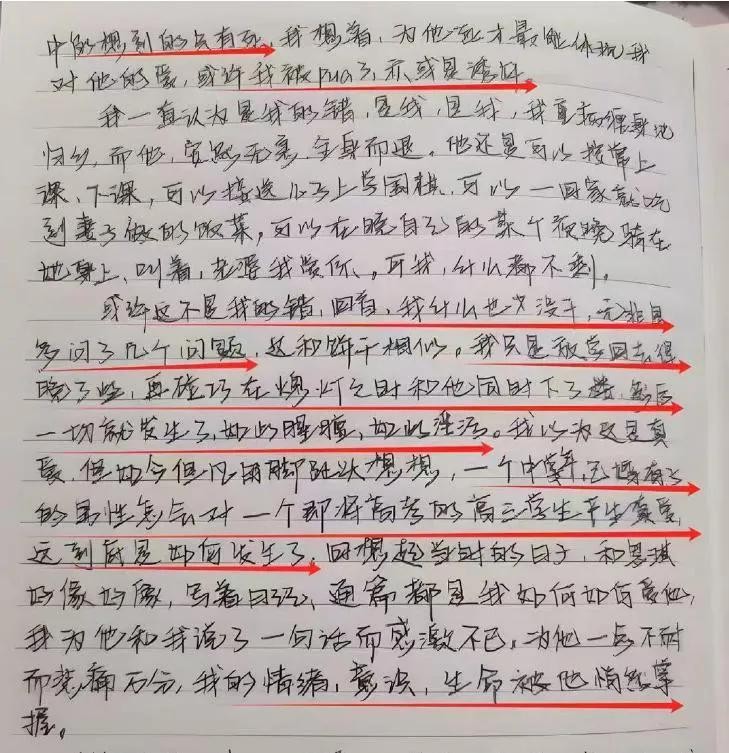 中的想到的只有死。我想着,为他死才最能体现我
对他的爱,或许我被pua了,亦或是诱奸。
我一直认为是我的错,是我,是我,我重病缠身地
归乡,而他,安然无恙,全身而退。他还是可以按常上
课、下课,可以接送儿子上学围棋,可以一回家就吃
到妻子做的饭菜,可以在晚自习的某个夜晚骑在
她身上,叫着,老婆我爱你。可我,什么都不剩。
或许这不是我的错,回首,我什么也没干,无非是
多问了几个问题,这和饼干相似。我只是放学回去得
晚了些,再碰巧在熄灯之时和他同时下了楼,然后
一切就发生了,如此腥膻,如此淫污。我以为这是真
爱,但如今但凡用脚趾头想想,一个中年,已婚有子
的男性怎会对一个即将高考的高三学生产生真爱,
这到底是如何发生了。回想起当时的日子,和思琪
好像好像,写着日记,通篇都是我如何如何爱他,
我为他和我说了一句话而感激不已,为他一点不耐
而悲痛万分,我的情绪,意识,生命被他悄然掌
握。